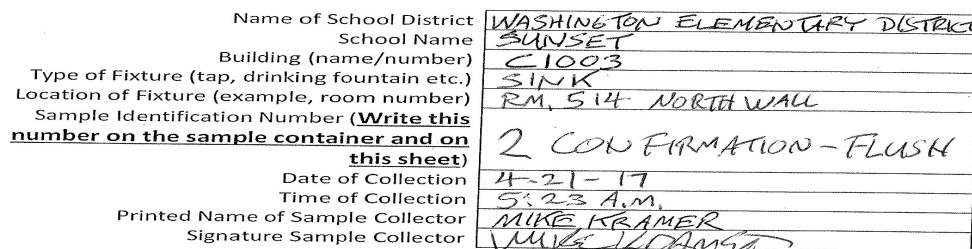 Name of School District WASHINGTON ELEMENTARY DISTRICT
School Name SUNSET
Building (name/number) C1003
Type of Fixture (tap, drinking fountain etc.) SINK
Location of Fixture (example, room number) RM. 514 NORTH WALL
Sample Identification Number (Write this
number on the sample container and on
this sheet) 2 CONFIRMATION-FLUSH
Date of Collection 4-21-17
Time of Collection 5:23 A.M.
Printed Name of Sample Collector MIKE KRAMER
Signature Sample Collector